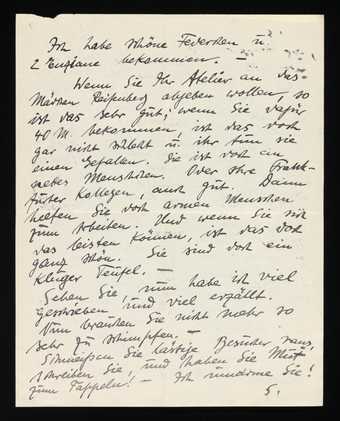 Ich habe schöne Federchen u.
2 Enziane bekommen. —
Wenn Sie Ihr Atelier an das
Mädchen abgeben wollen, so
ist das sehr gut; wenn Sie dafür
40 M. bekommen, ist das doch
gar nicht schlecht u. ihr tun sie
einen Gefallen. Sie ist doch ein
Menschchen. Oder Ihre Frank-
furter Kollegen, auch gut. Dann
helfen Sie doch armen Menschen
zum Arbeiten. Und wenn Sie sich
das leisten können, ist das doch
ganz schön. Sie sind doch ein
kluger Teufel. —
Sehen Sie, nun habe ich viel
geschrieben und viel erzählt.
Nun brauchen Sie nicht mehr so
sehr zu schimpfen. —
Schmeißen Sie lästige Besucher raus,
schreiben Sie, und haben Sie Mut
zum Tappeln! — Ich umarme Sie!